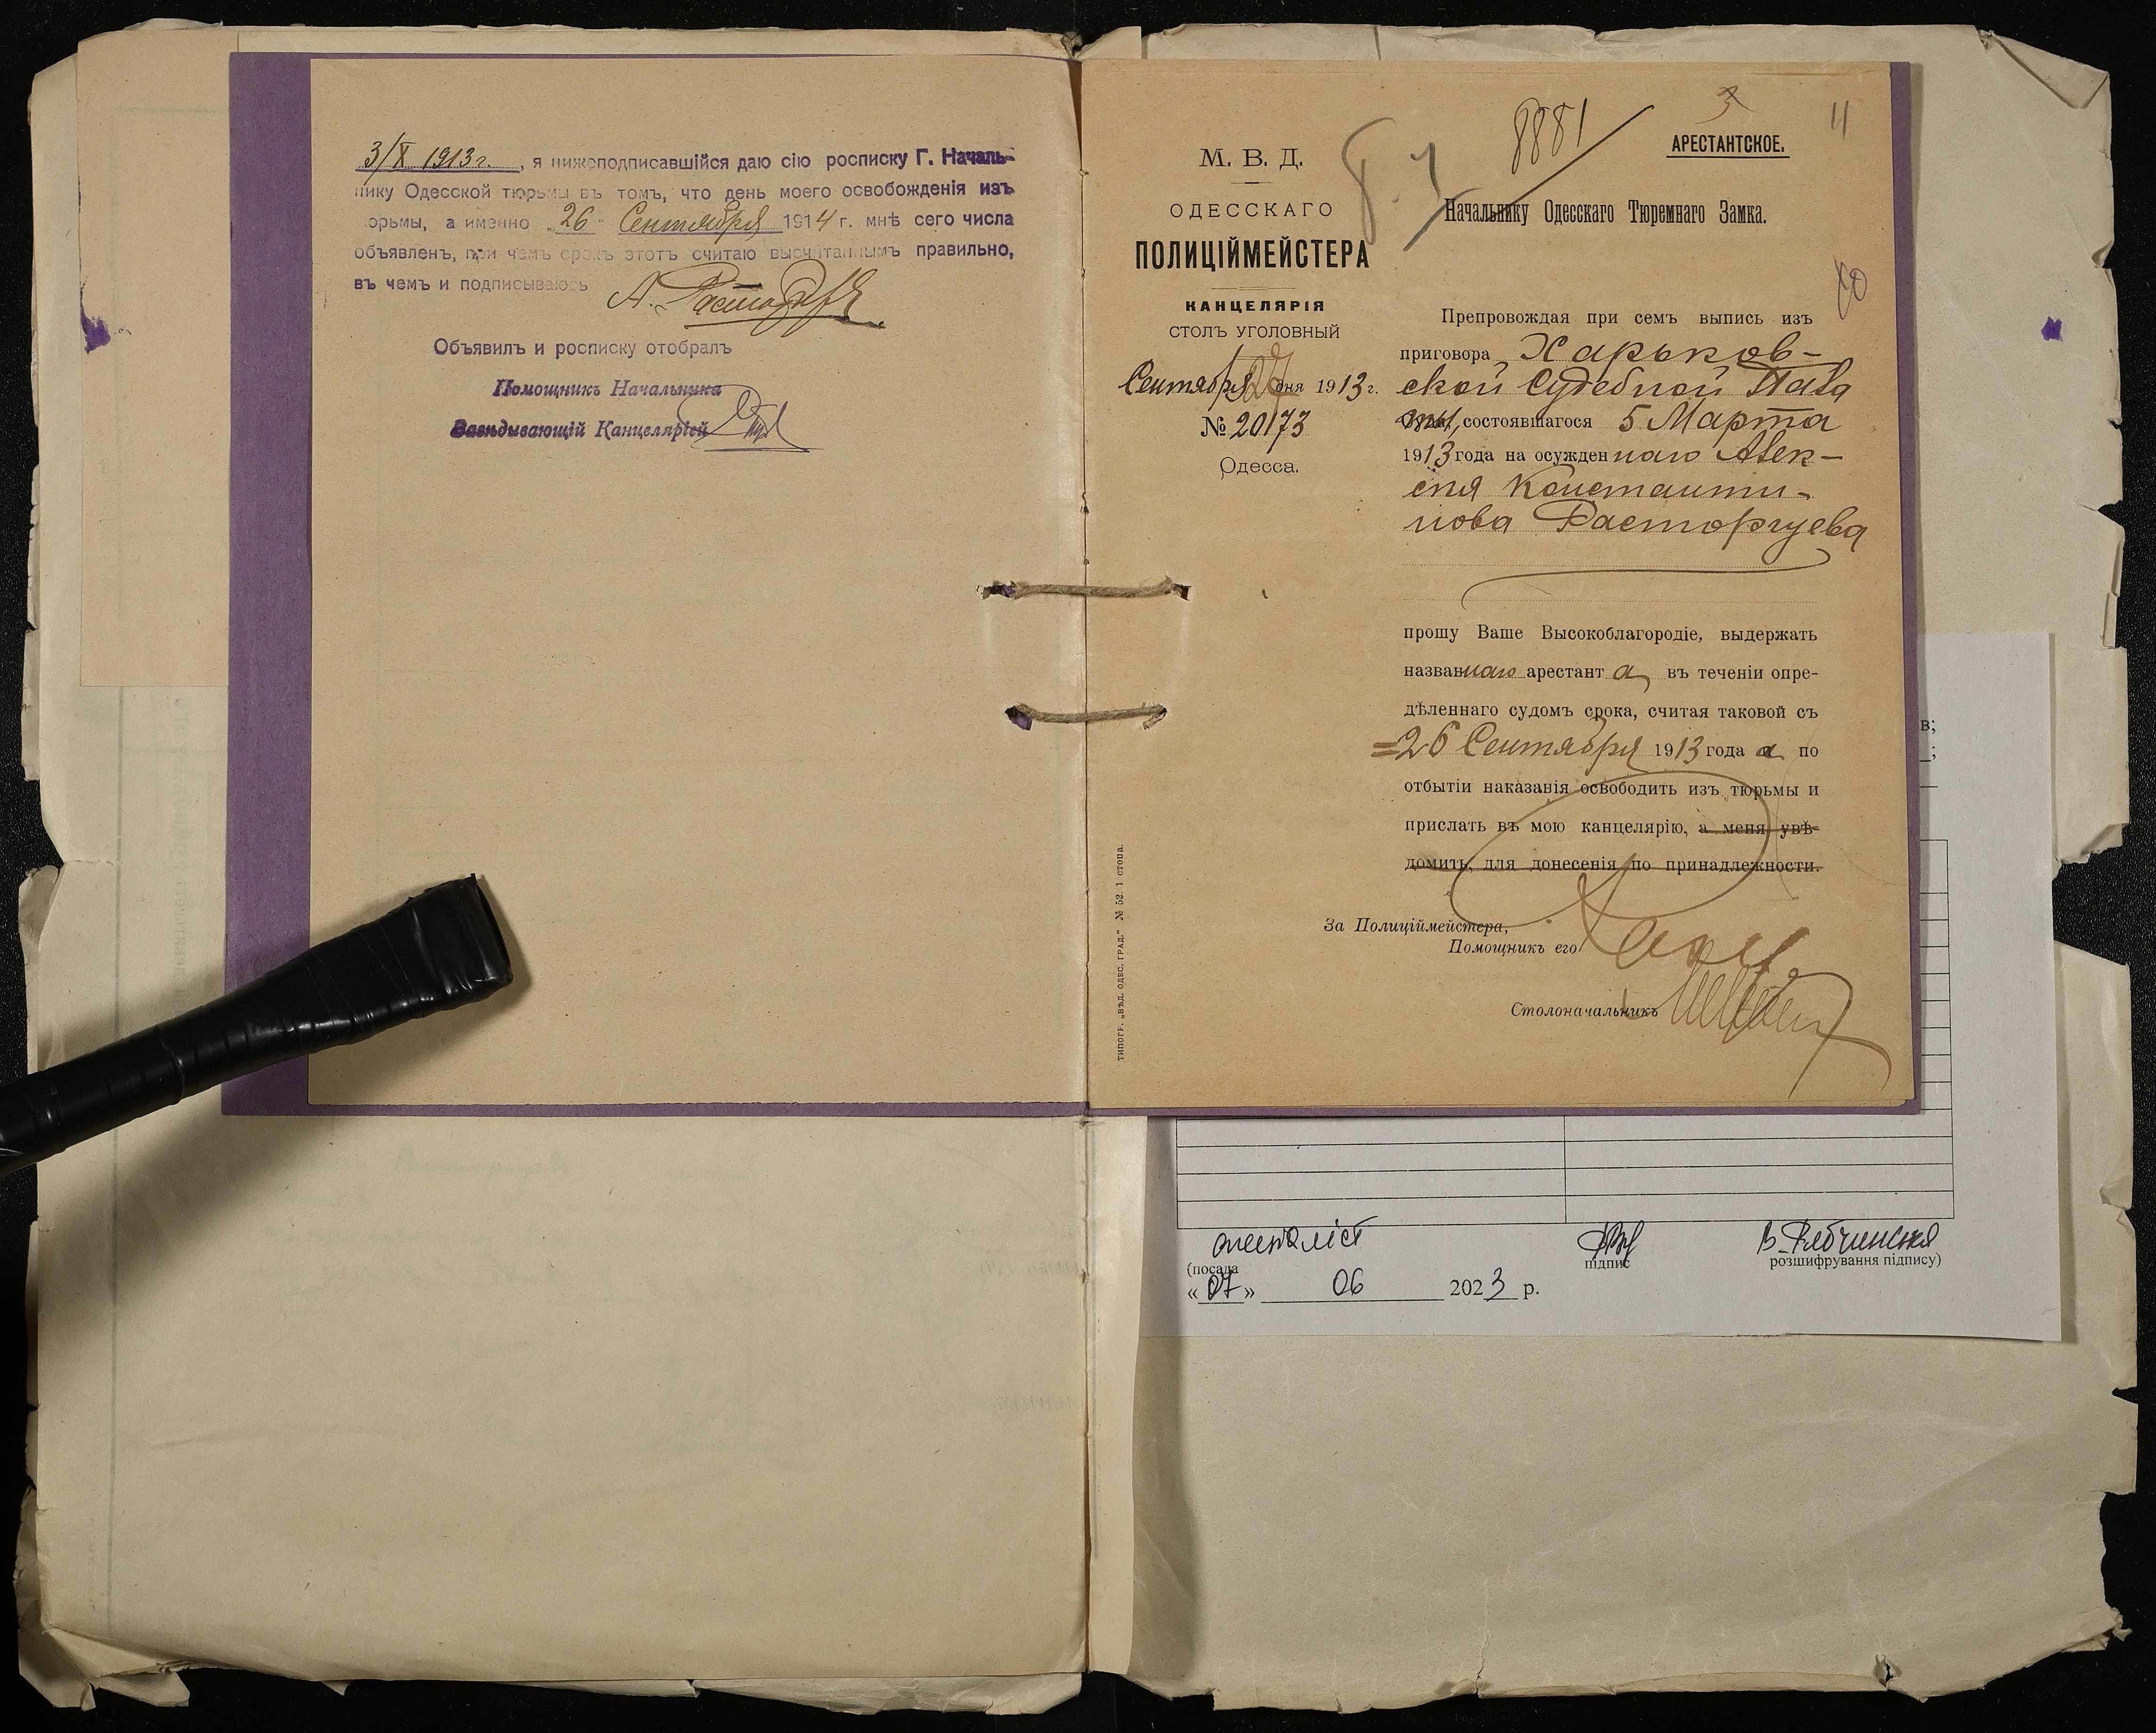 3/X 1913 г., я нижеподписавшійся даю сію росписку Г. Началь-
нику Одесской тюрьмы въ томъ, что день моего освобожденія изъ
орьмы, а именно „26" Сентября 1914 г. мнѣ сего числа
объявленъ, при чемъ срокъ этотъ считаю высчитаннымъ правильно,
въ чемъ и подписываюсь
Объявилъ и росписку отобралъ
Помощникъ Начальника
Завѣдывающій Канцелярией
3
11
АРЕСТАНТСКОЕ.
8881
М. В. Д.
ОДЕССКАГО
ПОЛИЦІЙМЕЙСТЕРА
КАНЦЕЛЯРІЯ
СТОЛЪ УГОЛОВНЫЙ
Сентября дня 1913 г.
№ 20173
Одесса.
Начальнику Одесскаго Тюремнаго Замка.
Препровождая при семъ выпись изъ
приговора Харьков-
ской Судебной Пала
ты, состоявшагося 5 Марта
1913 года на осужденнаго Алек-
сѣя Константи-
нова Расторгуева
прошу Ваше Высокоблагородіе, выдержать
названнаго арестанта въ теченіи опре-
дѣленнаго судомъ срока, считая таковой съ
=26 Сентября 1913 года а по
отбытіи наказанія освободить изъ тюрьмы и
прислать въ мою канцелярію, а меня увѣ-
домить, для донесенія по принадлежности.
За Полиціймейстера,
Помощникъ его
Столоначальникъ
ТИПОГР. „ВѢД. ОДЕС. ГРАД." № 52. 1 стопа.
в;
;
спеціаліст
(посада
підпис
В. Рябчинская
розшифрування підпису)
«07» 06 2023 р.